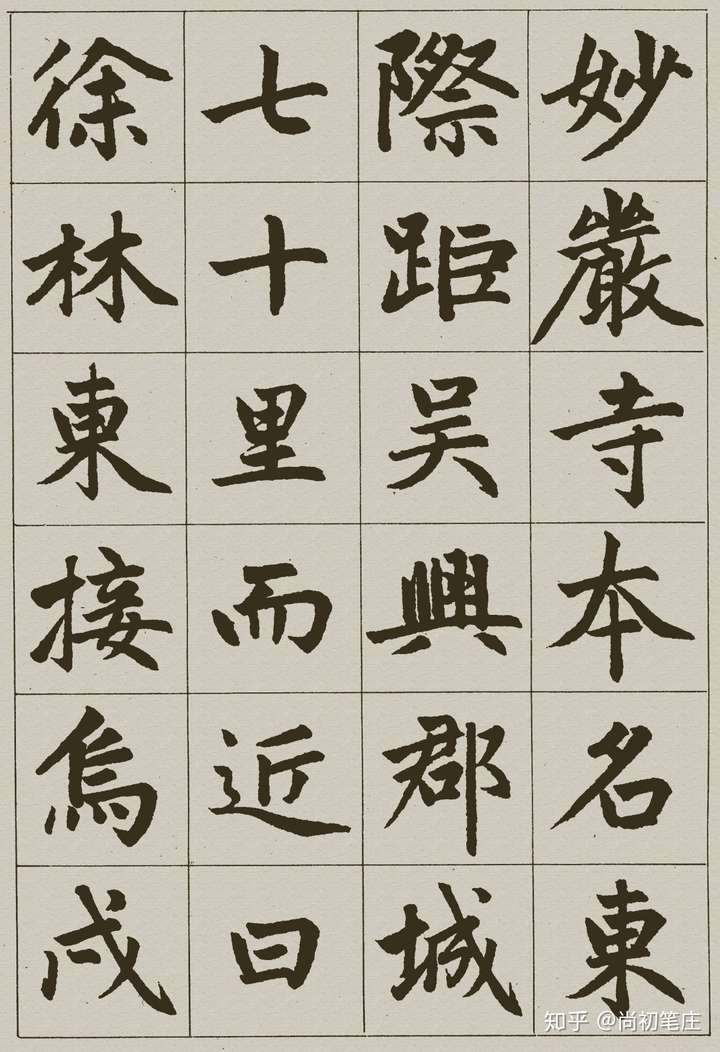 妙嚴寺本名東
際距吴興郡城
七十里而近曰
徐林東接烏戍
知乎 @尚初笔庄